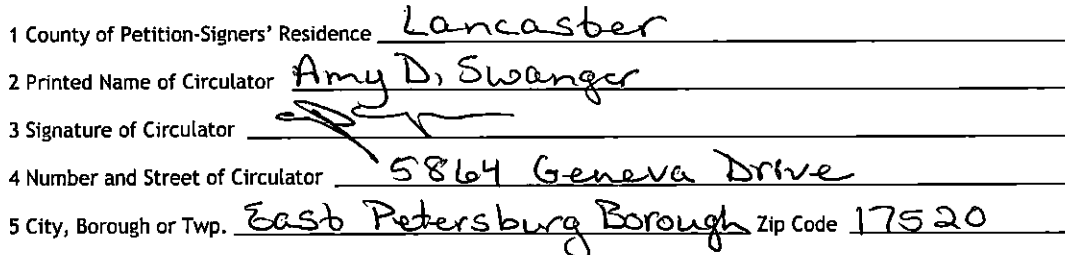 1 County of Petition-Signers' Residence Lancaster
2 Printed Name of Circulator Amy D, Swanger
3 Signature of Circulator
4 Number and Street of Circulator 5864 Geneva Drive
5 City, Borough or Twp. East Petersburg Borough Zip Code 17520